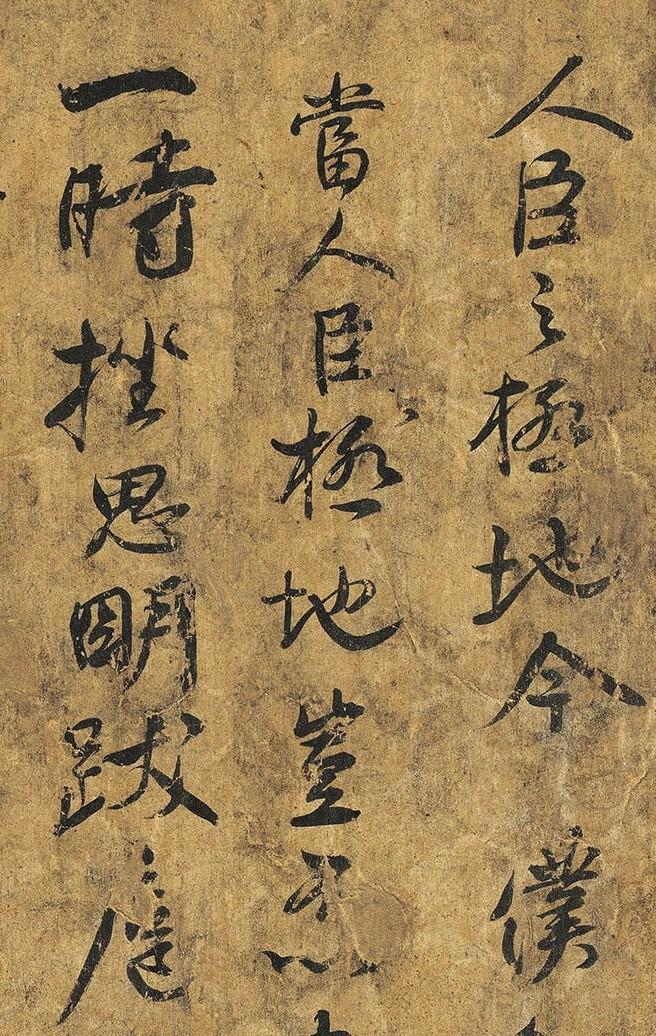 人臣之極地今僕
當人臣極地豈不以
一時挫思明跋扈